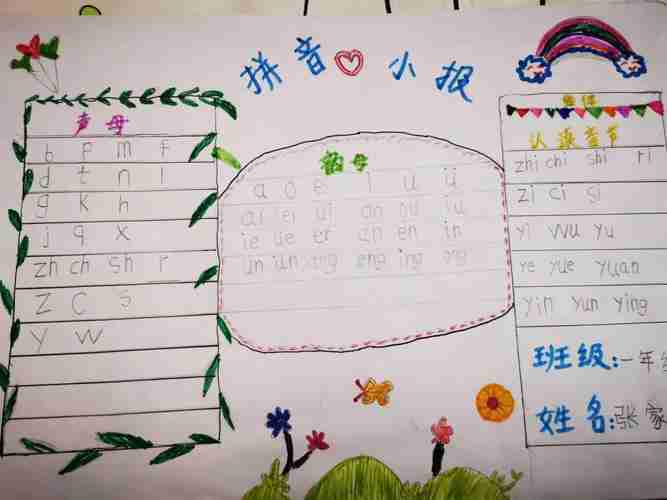 拼音小报
声母
b p m f
d t n l
g k h
j q x
zh ch sh r
z c s
y w
韵母
a o e i u ü
ai ei ui ao ou iu
ie üe er an en in
un ün ang eng ing ong
整体
认读音节
zhi chi shi ri
zi ci si
yi wu yu
ye yue yuan
yin yun ying
班级:一年级
姓名:张家